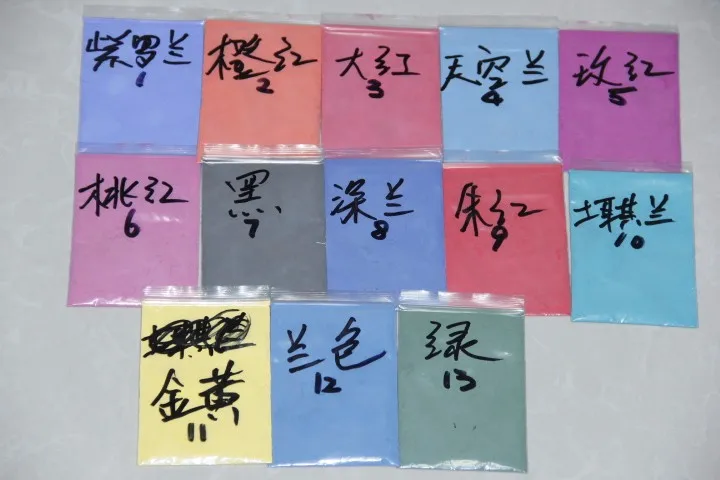 紫罗兰
1
橙红
2
大红
3
天空兰
4
玫红
5
桃红
6
黑
7
深兰
8
朱红
9
土耳其兰
10
金黄
11
兰色
12
绿
13